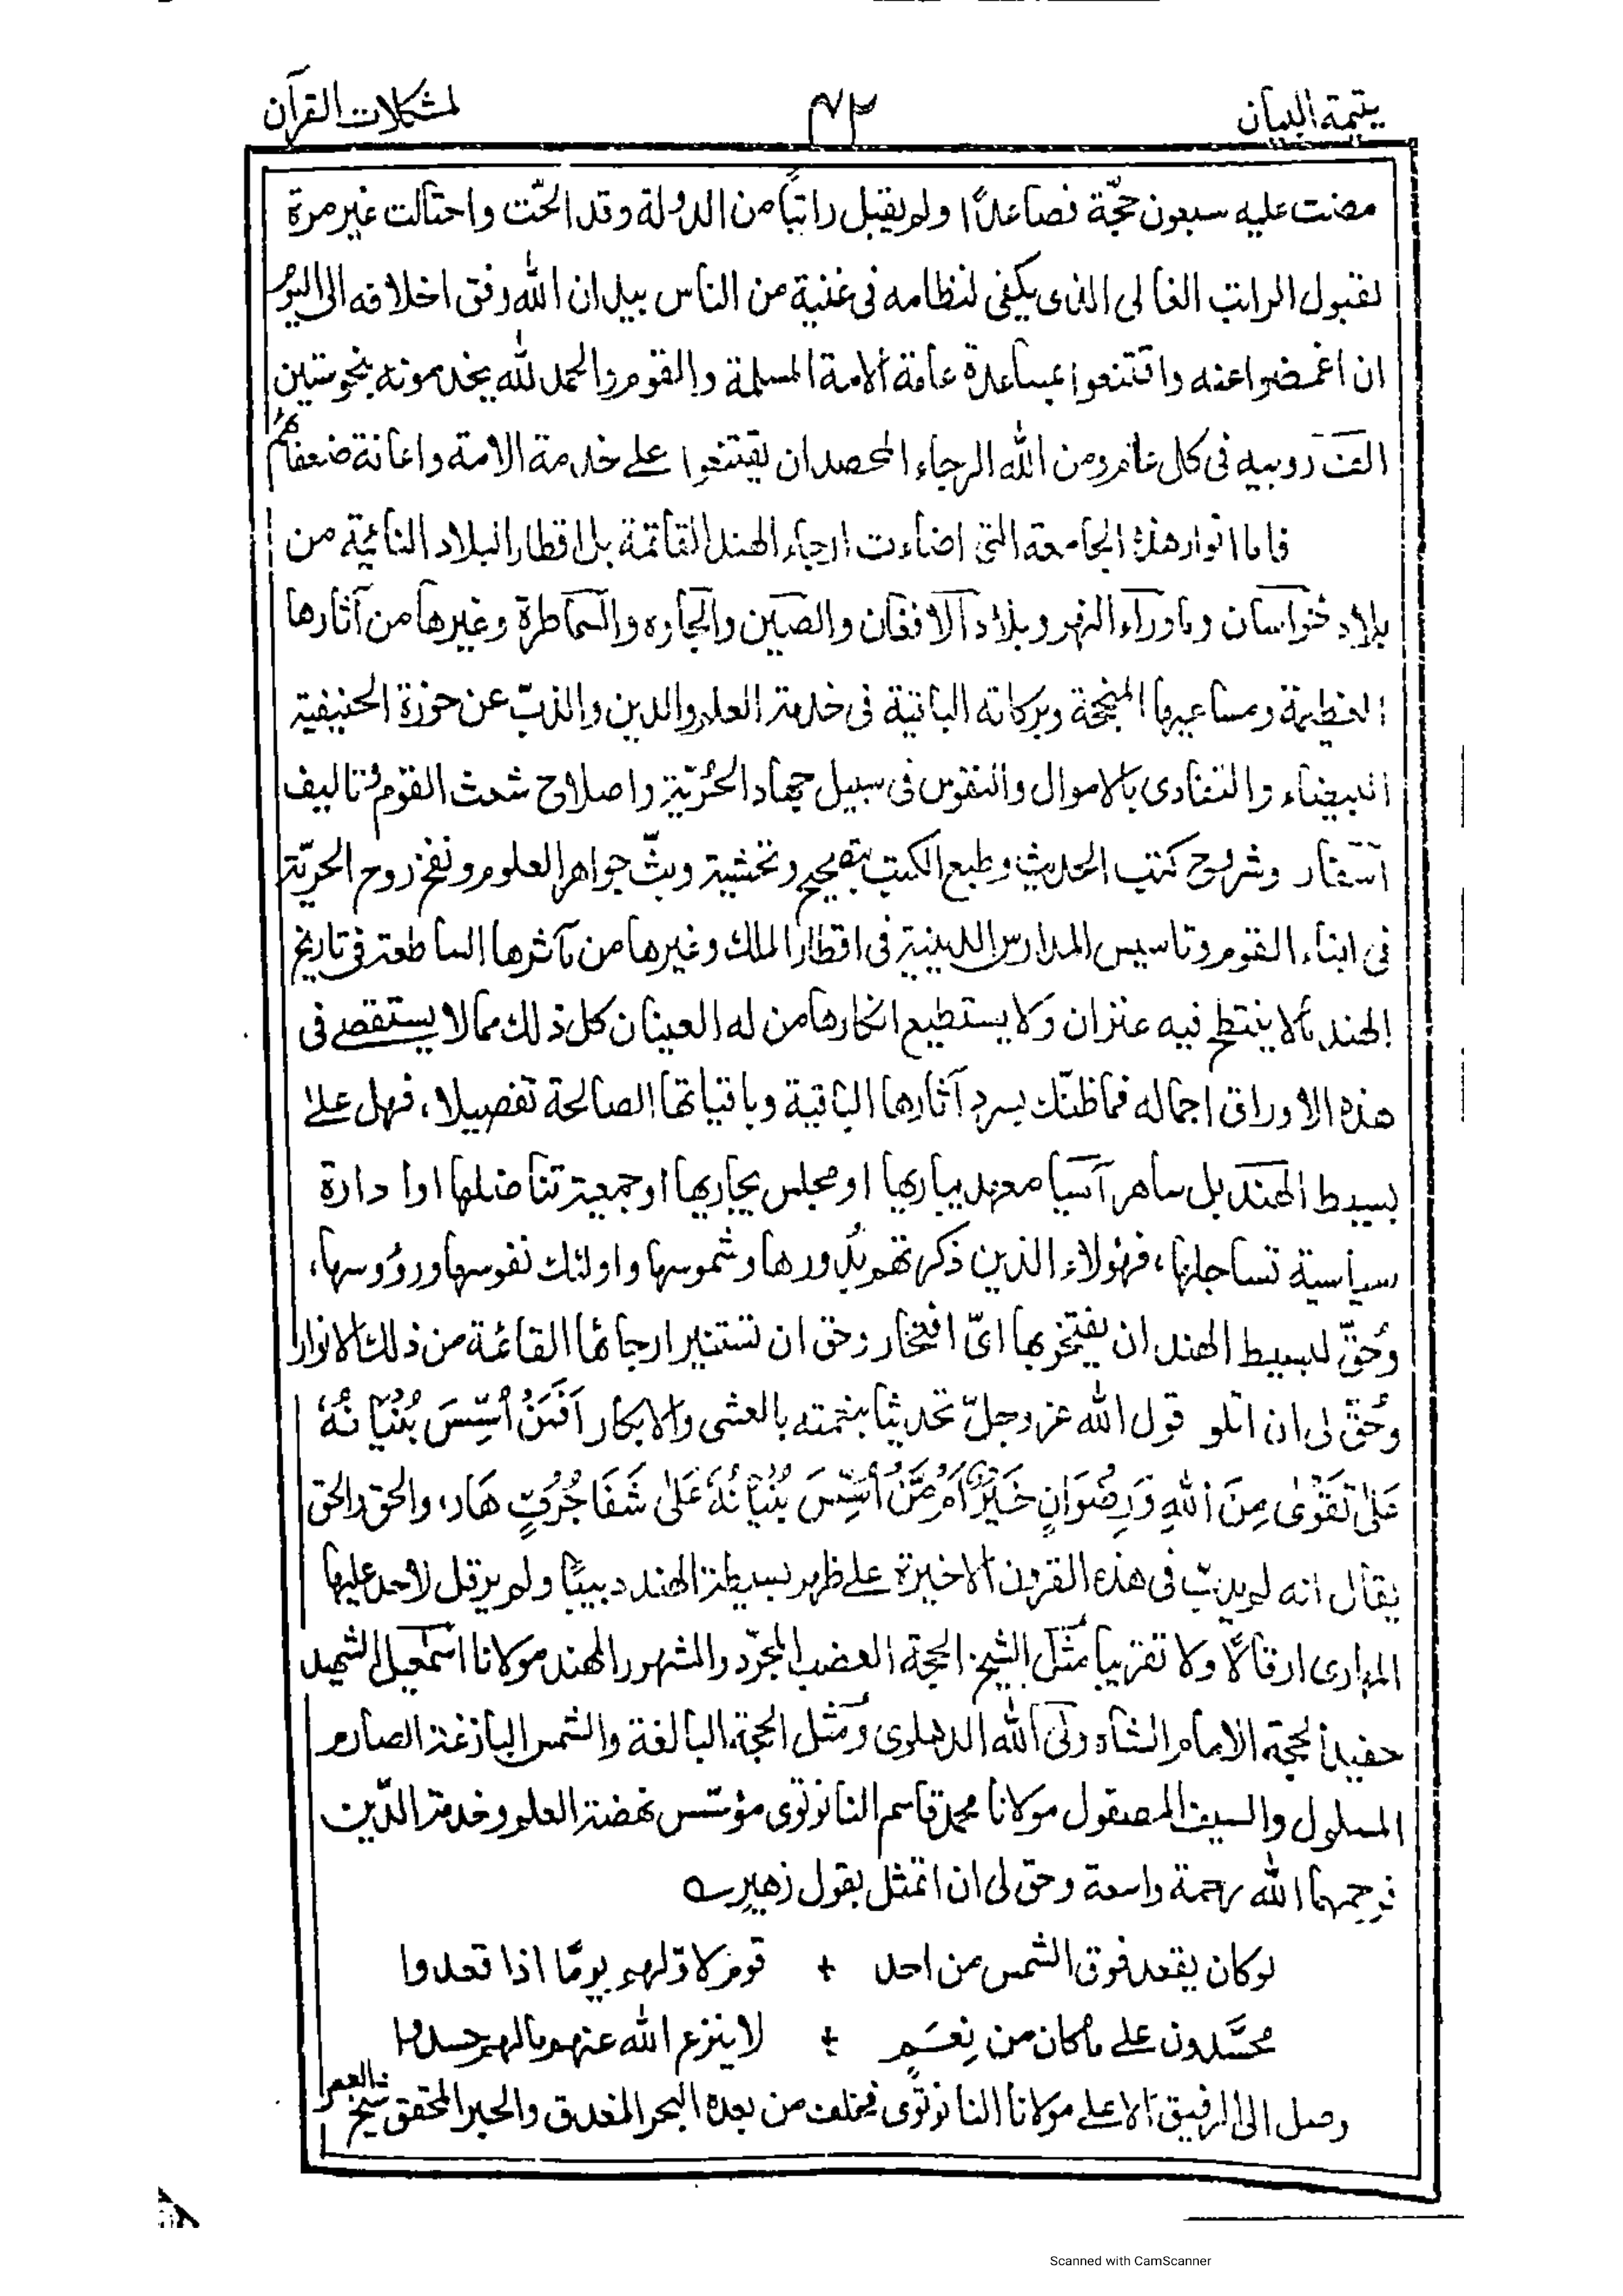 يتيمة البيان
٧٣
لمشكلات القرآن
مضت عليه سبعون حجّة فصاعدًا ولم يقبل راتبًا من الدولة وقد الحّت واحتالت غير مرة
لقبول الراتب الغالى الذى يكفى لنظامه فى غنية من الناس بيد ان الله وفق اخلافه الى اليوم
ان اغمضوا عنه واقتنعوا بمساعدة عامة الامة المسلمة والقوم والحمد لله يخدمونه بنحو ستين
الف روبيه فى كل عام ومن الله الرجاء المحصد ان يقتنعوا على خدمة الامة واعانة ضعفائهم
فاما انوار هذه الجامعة التى اضاءت ارجاء الهند القاتمة بل اقطار البلاد النائية من
بلاد خراسان وماوراء النهر وبلاد الافغان والصين والجاوه والسماطرة وغيرها من آثارها
العظيمة ومساعيها المنجحة وبركاته الباقية فى خدمة العلم والدين والذبّ عن حوزة الحنيفية
البيضاء والتفادى بالاموال والنفوس فى سبيل جهاد الحُرّيّة واصلاح شعث القوم وتاليف
آسفار وشروح كتب الحديث وطبع الكتب بتصحيح وتحشية وبثّ جواهر العلوم ونفخ روح الحريّة
فى ابناء القوم وتاسيس المدارس الدينية فى اقطار الملك وغيرها من مآثرها الساطعة فى تاريخ
الهند مالا ينتطح فيه عنزان ولا يستطيع انكارها من له العينان كل ذلك مما لا يستقصے فى
هذه الاوراق اجماله فماظنّك بسرد آثارها الباقية وباقياتها الصالحة تفصيلا، فهل على
بسيط الهند بل ساهر آسيا معهد يباريها او مجلس يجاريها او جمعية تناضلها او ادارة
سياسية تساجلها، فهؤلاء الذين ذكرتهم بُدورها وشموسها واولئك نفوسها ورؤوسها،
وحُقّ لبسيط الهند ان يفتخر بها اىّ افتخار وحق ان تستنير ارجائها القاتمة من ذلك الانوار
وحُقّ لى ان اتلو قول الله عز وجلّ تحديثا بنعمته بالعشى والابكار اَفَمَنْ اُسِّسَ بُنْيَانُهٗ
عَلٰى تَقْوٰى مِنَ اللهِ وَرِضْوَانٍ خَيْرٌ اَمْ مَّنْ اُسِّسَ بُنْيَانُهٗ عَلٰى شَفَا جُرُفٍ هَار، والحق والحق
يقال انه لم يدبّ فى هذه القرون الاخيرة على ظهر بسيطة الهند دبيبًا ولم يرقل لاحد عليها
المهارى ارقالًا ولا تقريبا مثل الشيخ الحجة العضب المجرّد والشهور المهند مولانا اسمٰعيل الشهيد
حفيد الحجة الامام الشاه ولى الله الدهلوى ومثل الحجة البالغة والشمس البازغة الصارم
المسلول والسيف المصقول مولانا محمد قاسم النانوتوى مؤسّس نهضة العلم وخدمة الدّين
فرحمهما الله رحمة واسعة وحق لى ان اتمثل بقول زهيرؔ
لو كان يقعد فوق الشمس من احد + قوم لاوّلهم يومًا اذا قعدوا
محسَّدون على ما كان من نِعَمٍ + لا ينزع الله عنهم ما لهم حسدوا
وصل الى الرفيق الاعلى مولانا النانوتوى فخلف من بعده البحر المغدق والحبر المحقق شيخ العصر
Scanned with CamScanner